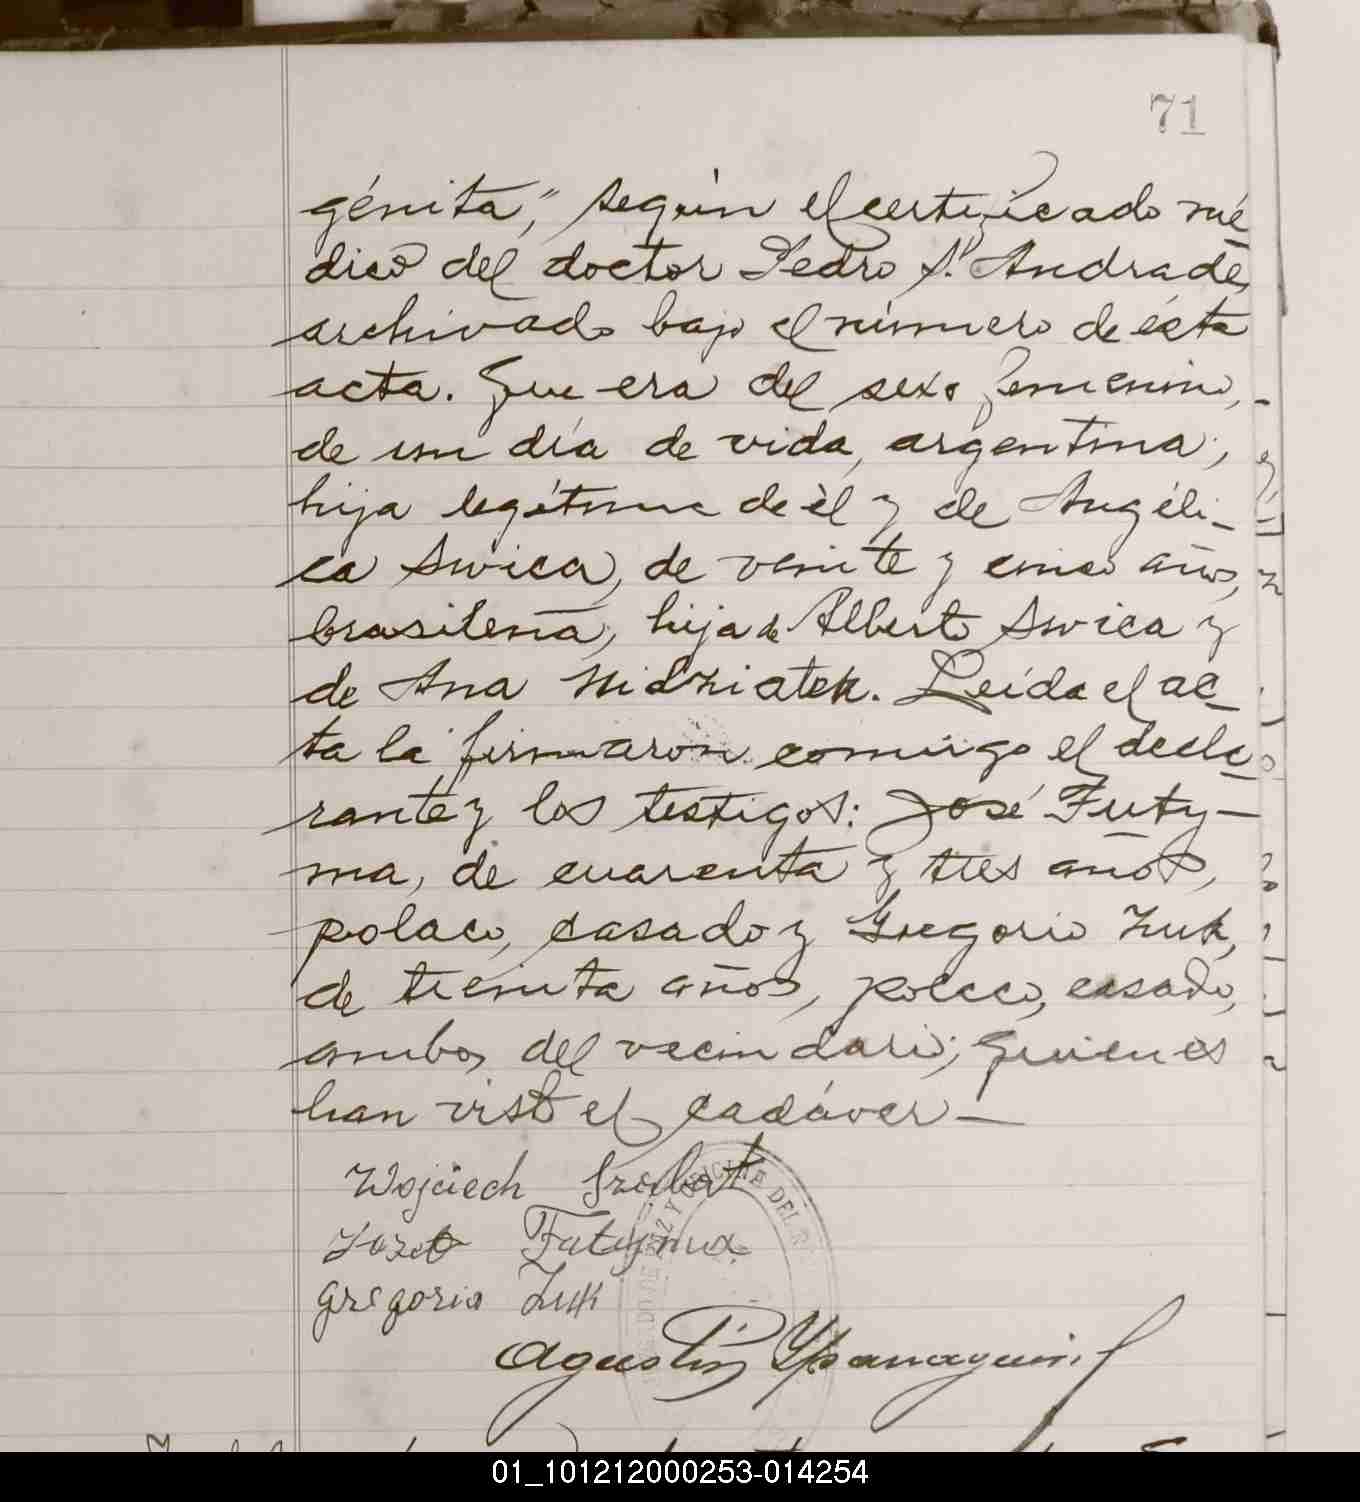 71
génita", según el certificado mé
dico del doctor Pedro S. Andrade,
archivado bajo el número de ésta
acta. Que era del sexo femenino,
de un día de vida, argentina,
hija legítima de él y de Angéli-
ca Swica, de veinte y cinco años,
brasileña, hija de Alberto Swica y
de Ana Nidziatek. Leída el ac-
ta la firmaron conmigo el decla-
rante y los testigos: José Futy-
ma, de cuarenta y tres años,
polaco, casado y Gregorio Zuk,
de treinta años, polaco, casado,
ambos del vecindario; quienes
han visto el cadáver —
Wojciech
Jozef Futyma
Gregorio Zuk
Agustin
01_101212000253-014254